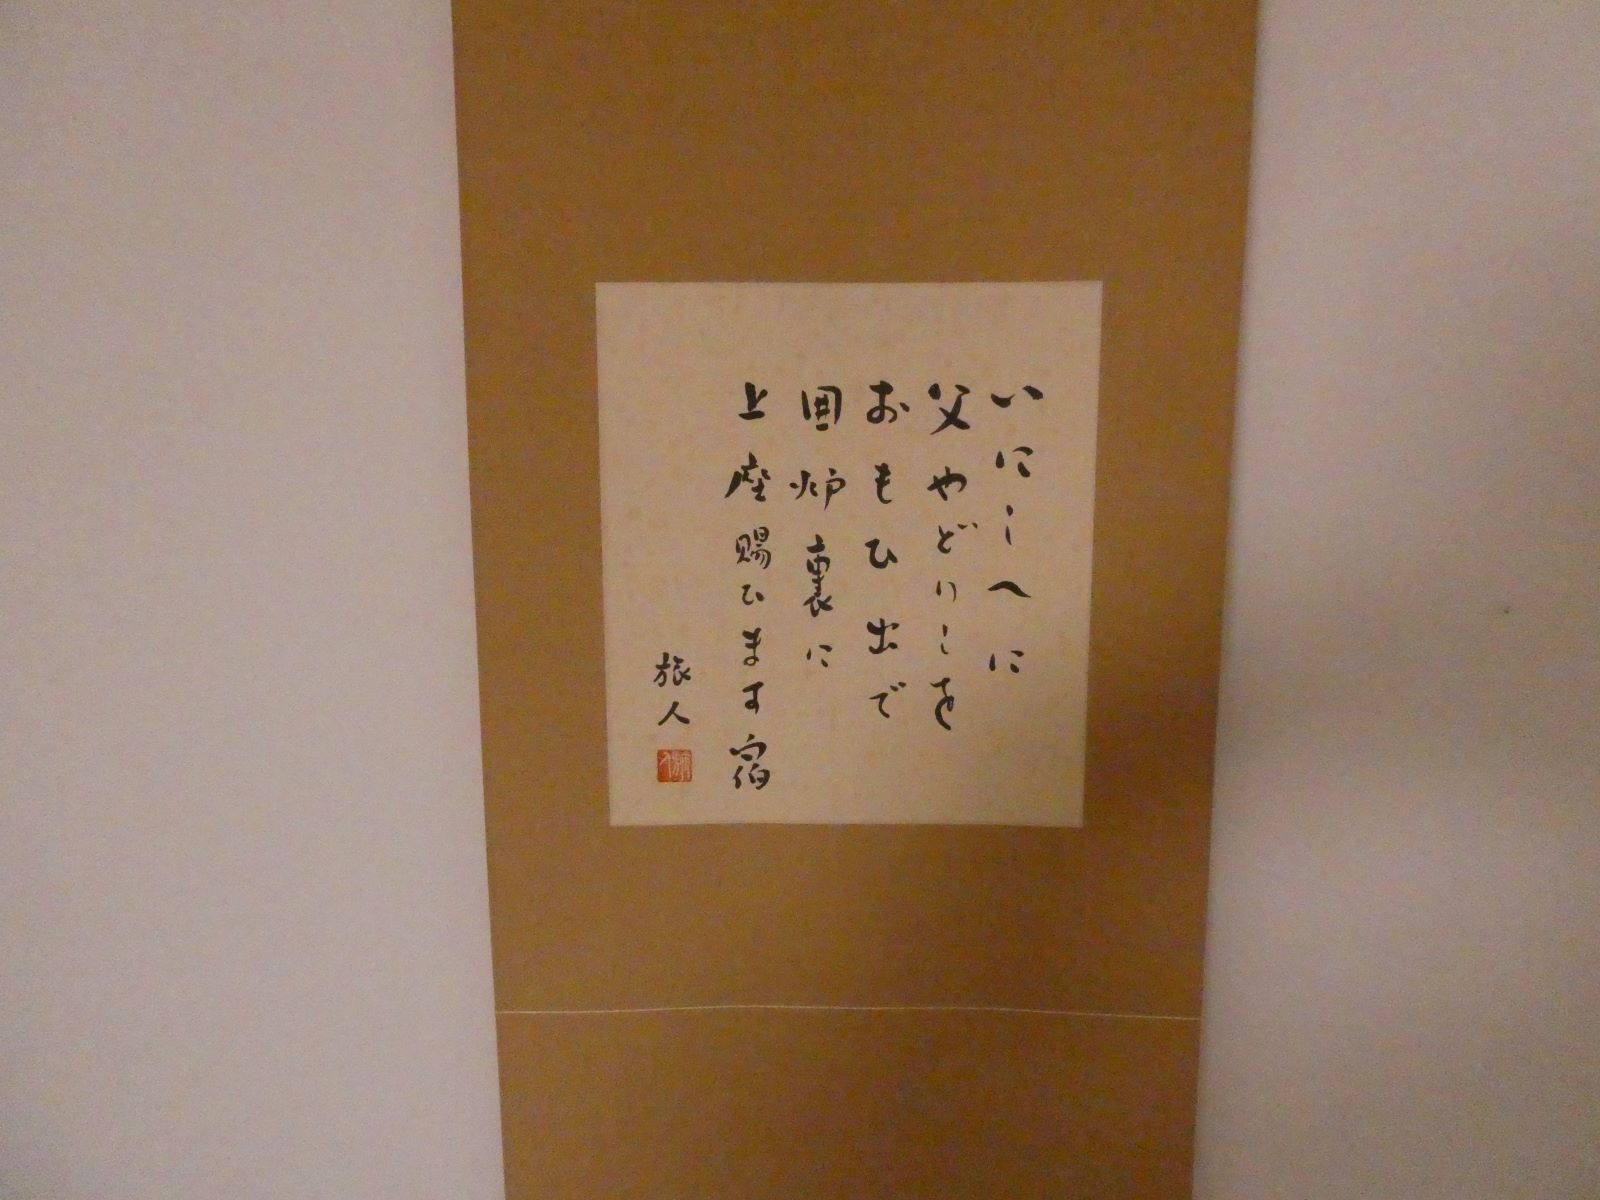 いにしへに
父やどりしを
おもひ出で
囲炉裏に
上座賜ひます宿
旅人